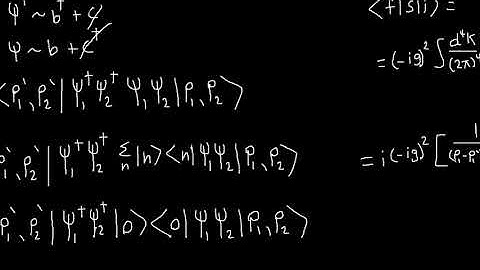 ψ† ~ b† + c
ψ ~ b + c†
⟨p₁`, p₂` | ψ₁† ψ₂† ψ₁ ψ₂ | p₁, p₂⟩
p₁`, p₂` | ψ₁† ψ₂† Σₙ |n⟩⟨n| ψ₁ ψ₂ | p₁, p₂⟩
p₁`, p₂` | ψ₁† ψ₂† |0⟩⟨0| ψ₁ ψ₂ | p₁, p₂⟩
⟨f|S|i⟩ =
= (-ig)² ∫ d⁴k/(2π)⁴
= i(-ig)² [ 1/(p₁-p₁`